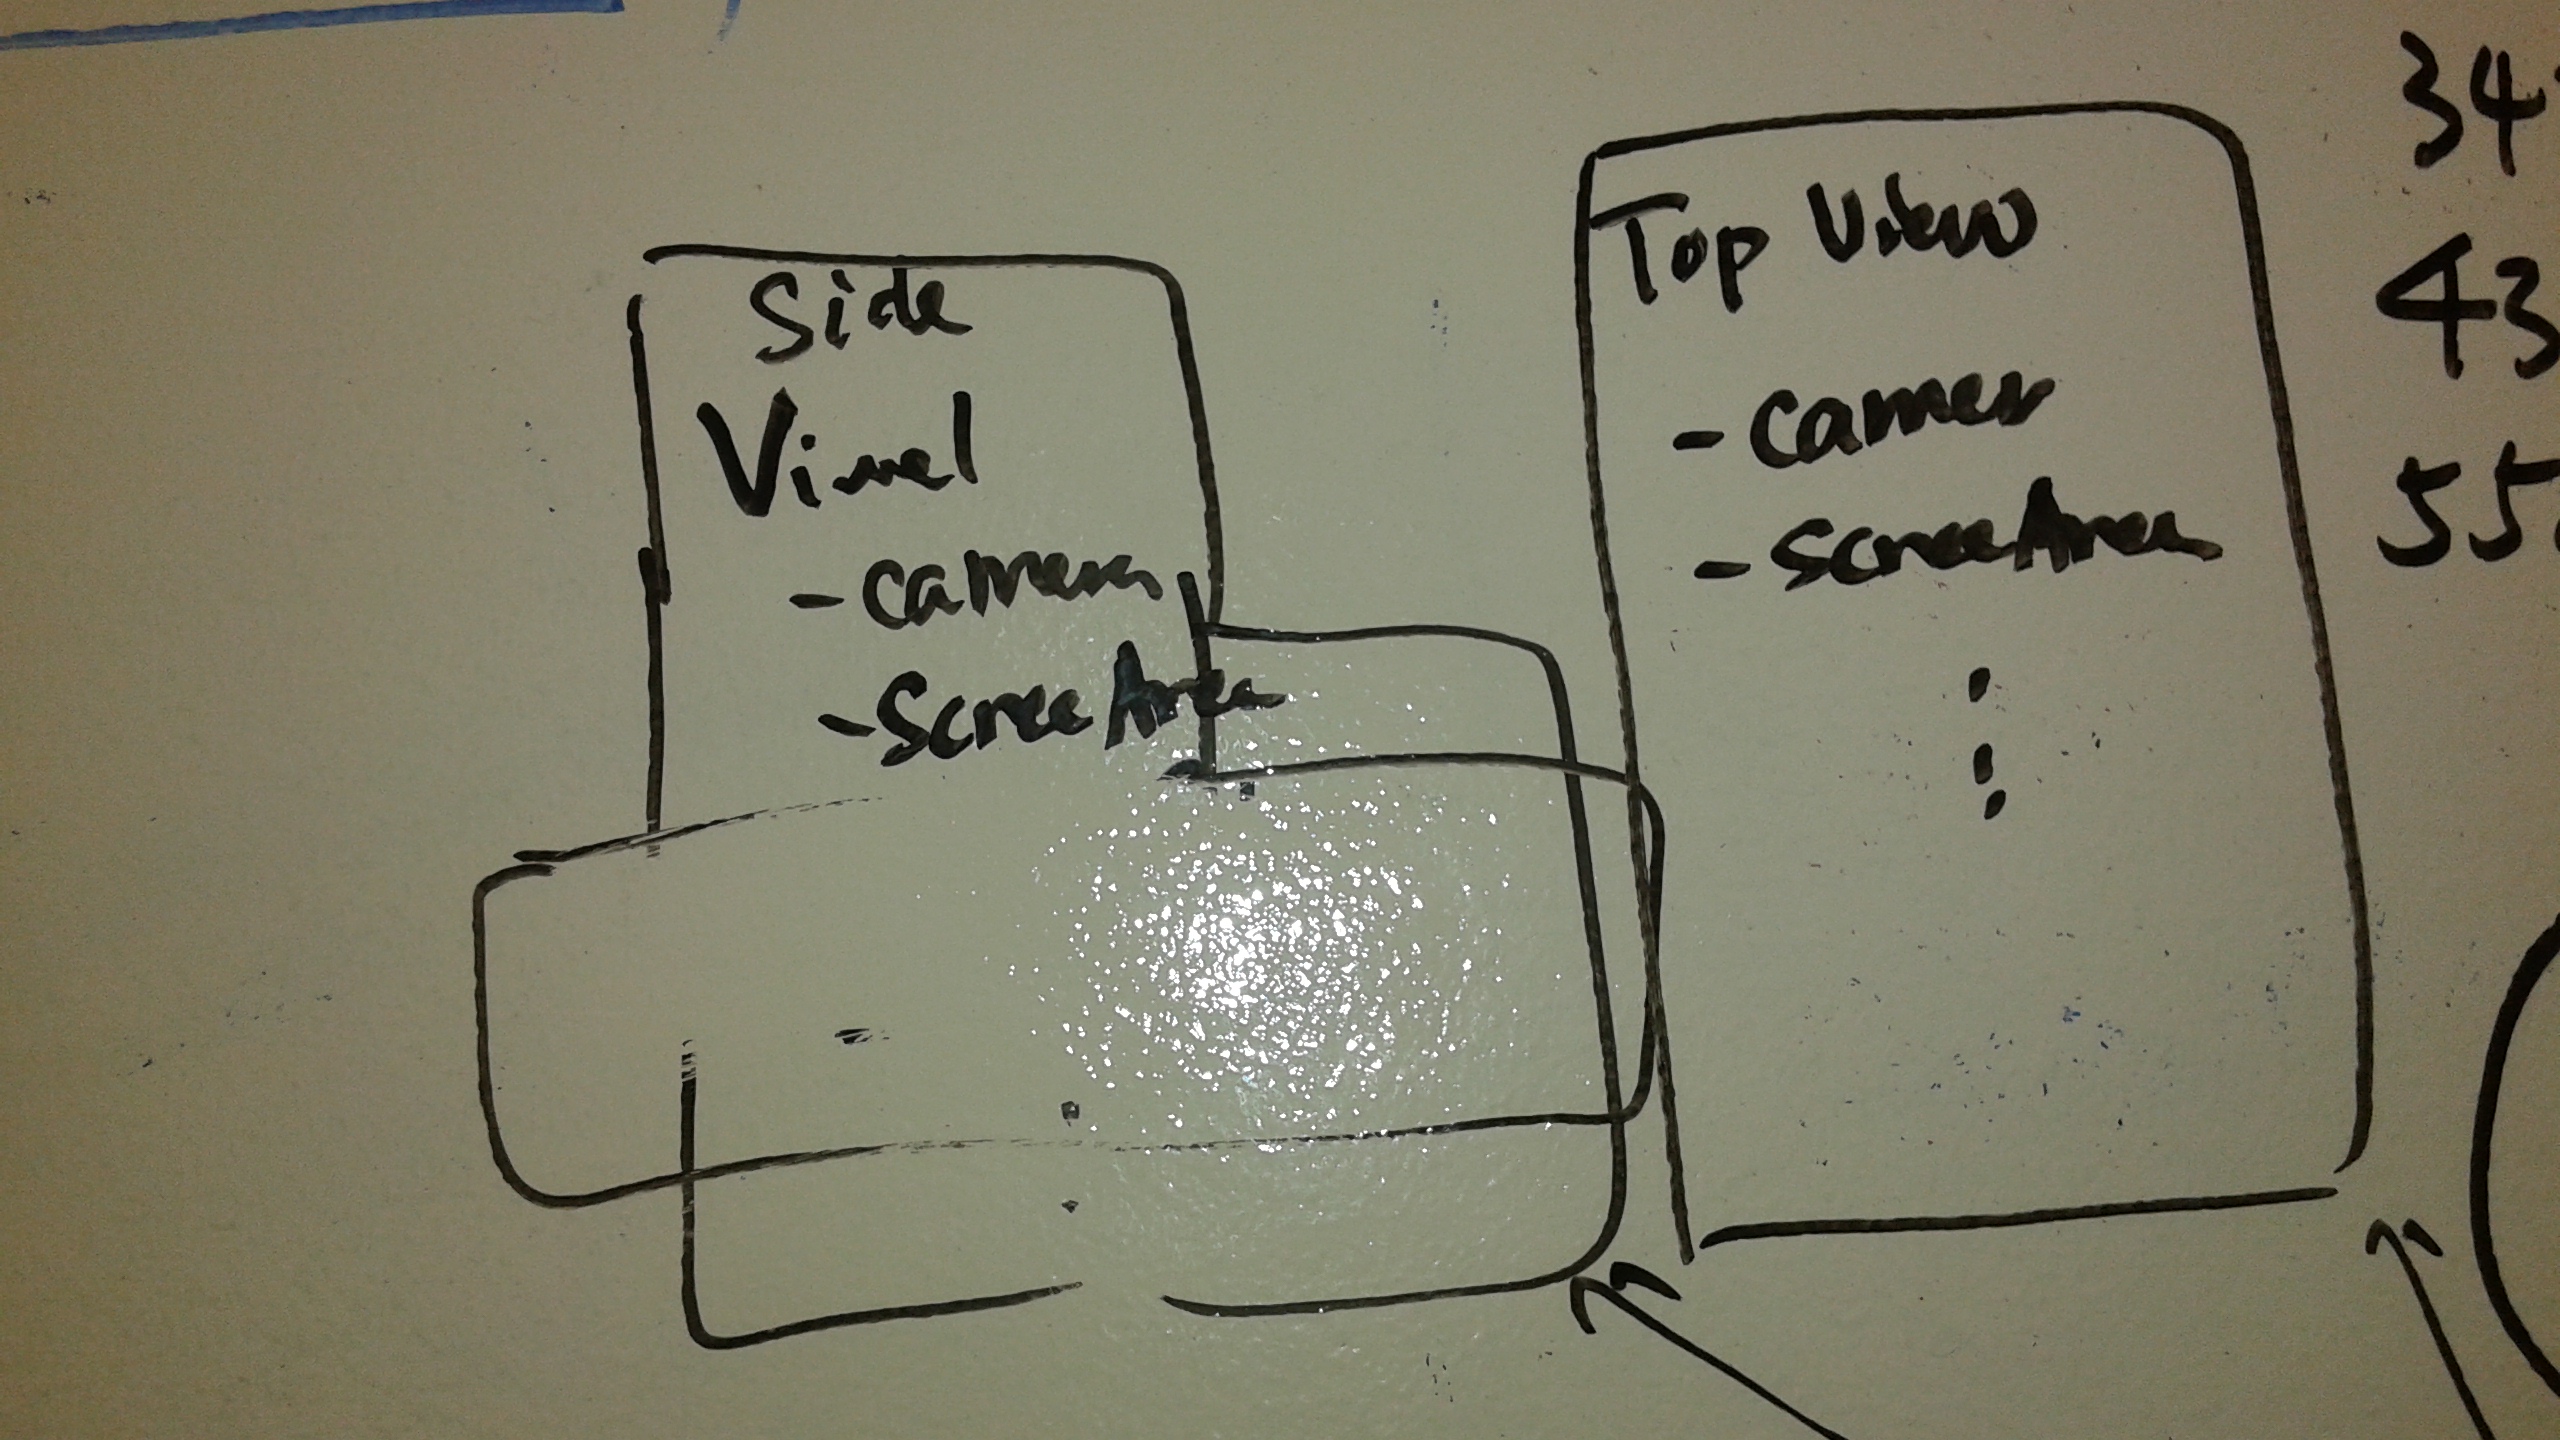 Side
Viwel
- camera
- ScreeArea
Top View
- camer
- ScreeArea
34
43
55